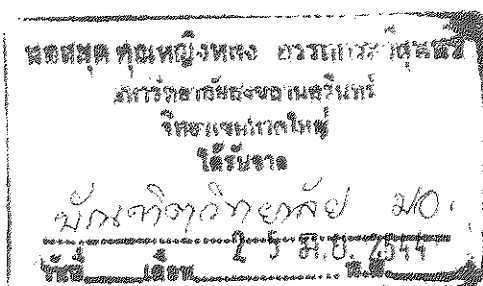 หอสมุด คุณหญิงหลง อรรถกระวีสุนทร
มหาวิทยาลัยสงขลานครินทร์
วิทยาเขตหาดใหญ่
ได้รับจาก
บัณฑิตวิทยาลัย มอ.
วันที่ เดือน 25 มิ.ย. 2544 พ.ศ.